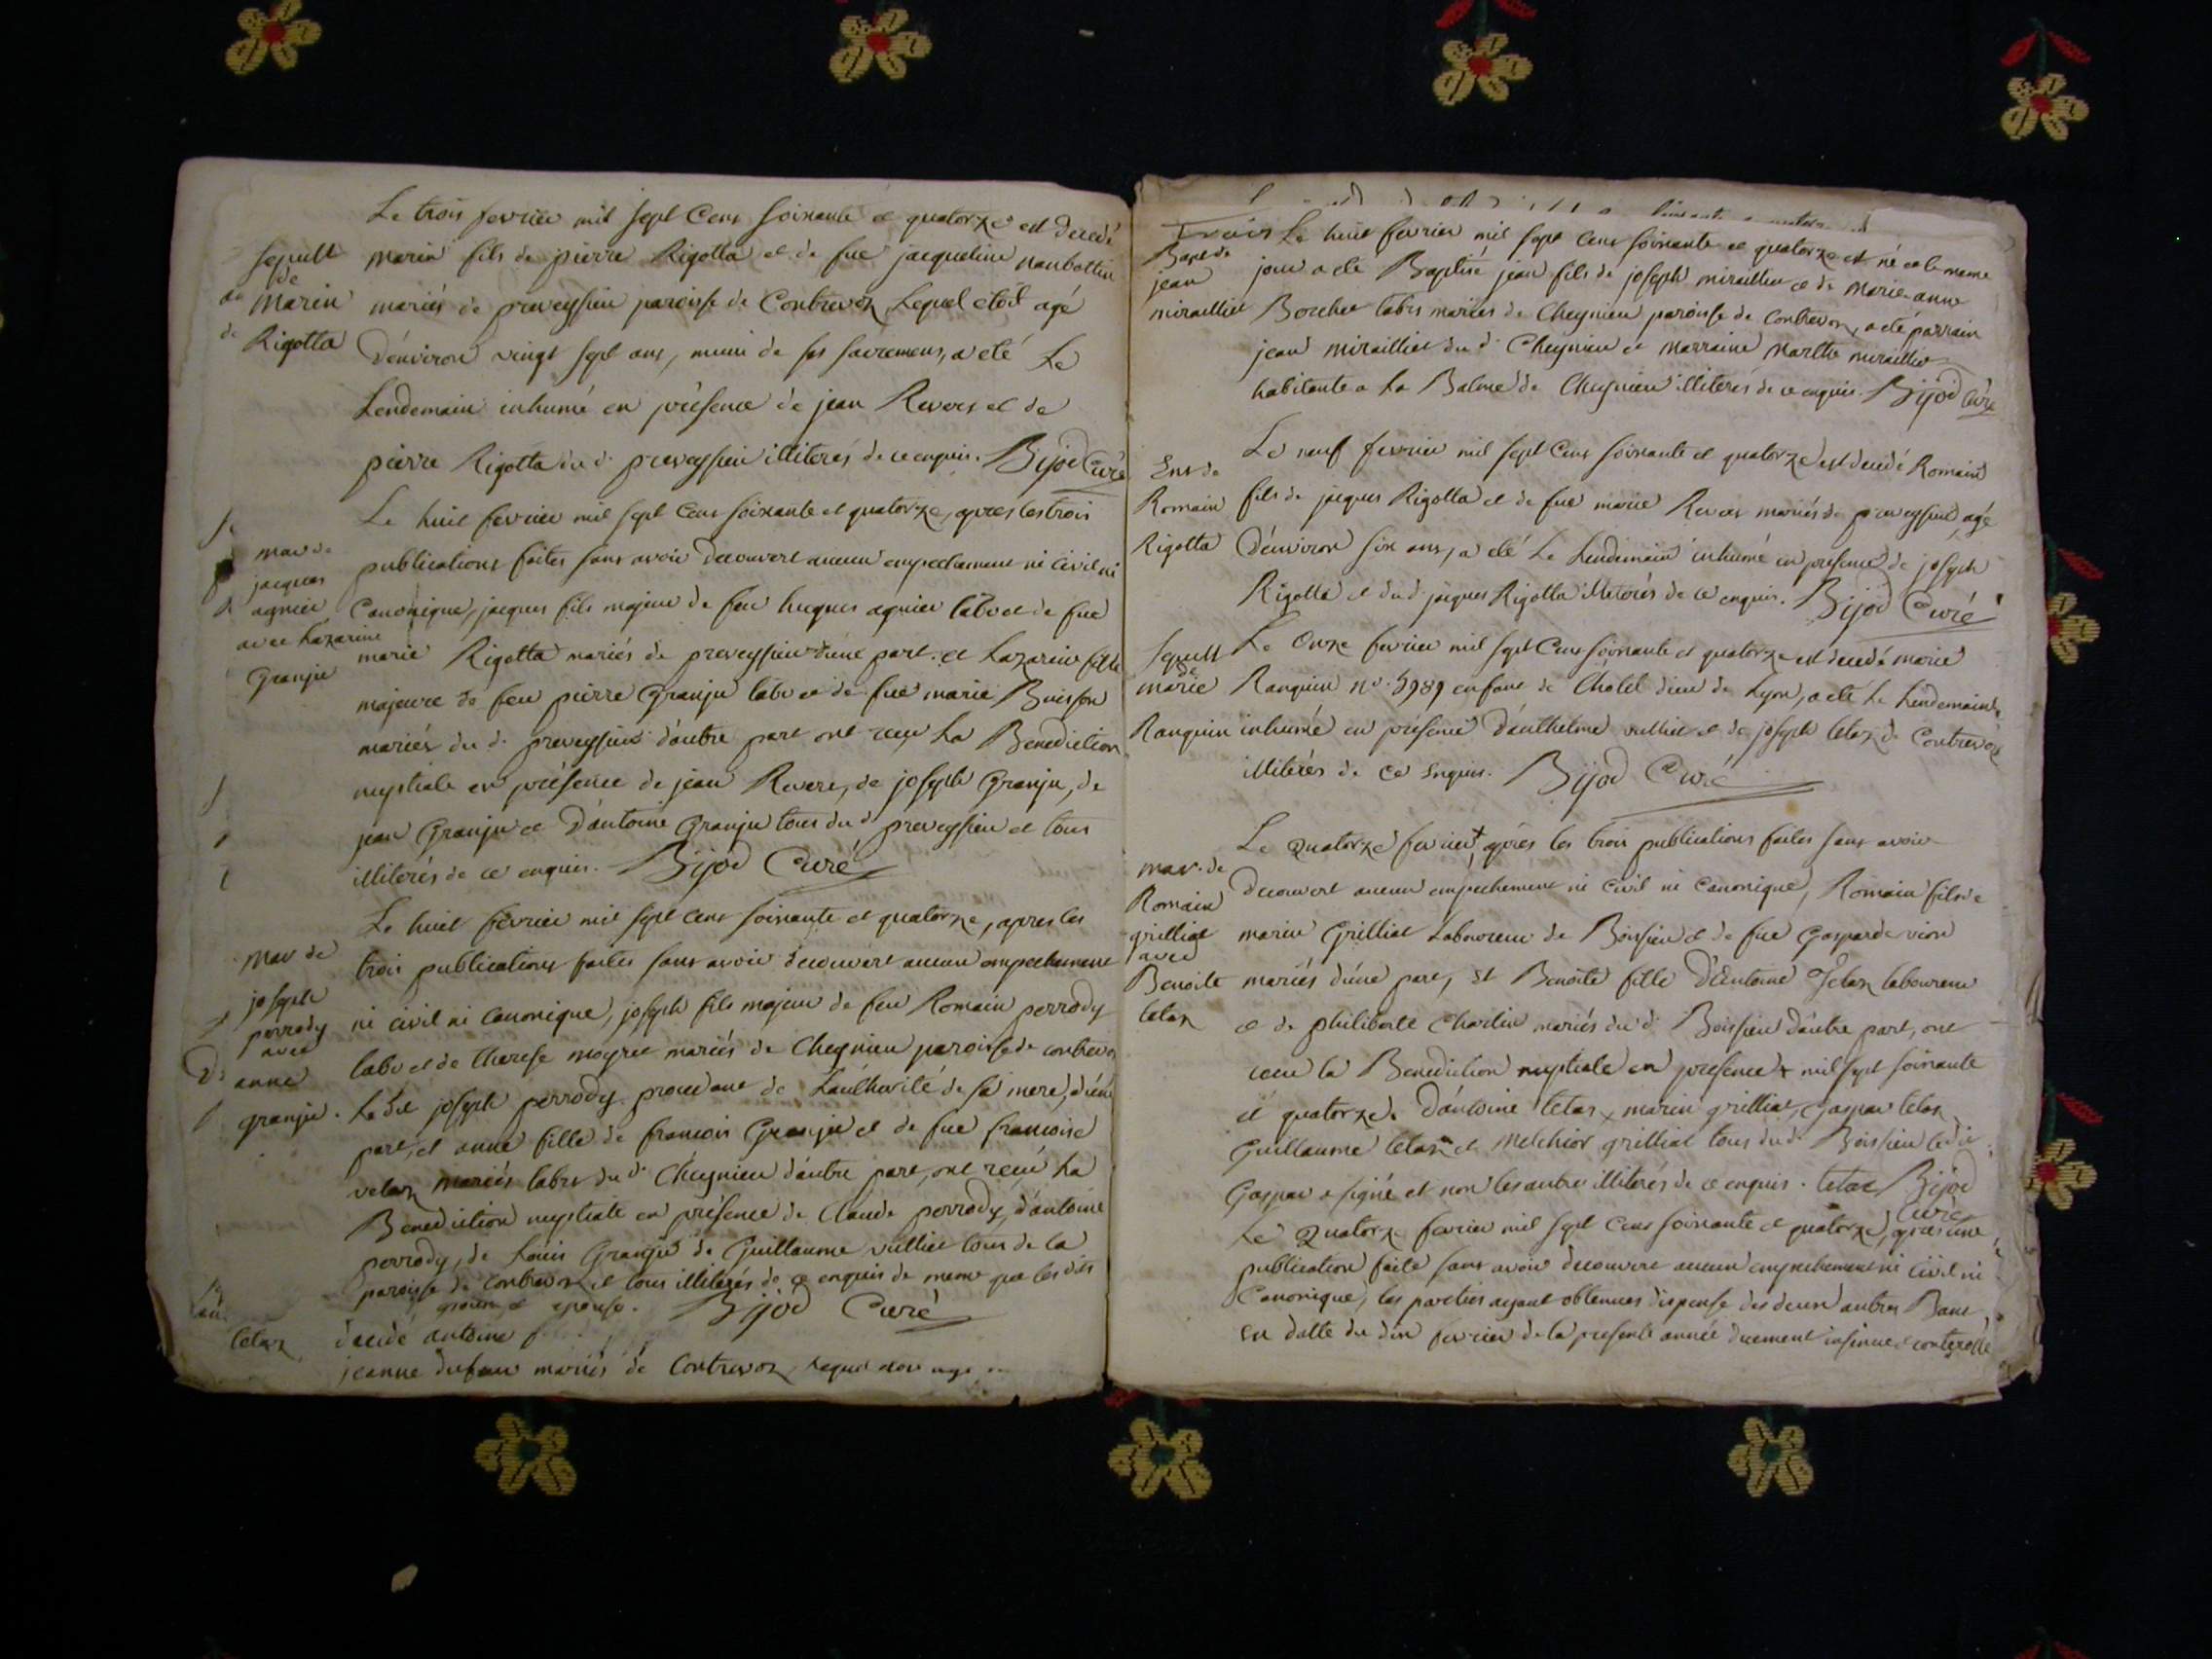 Le trois fevrier mil sept cens soixante et quatorze est decedé
sepult
de
Marin
Rigotta
marin fils de pierre Rigotta et de fue jacqueline
mariés de preveyssieu paroisse de Contrevoz, Lequel étoit agé
d'environ vingt sept ans, muni de ses sacremens, a eté Le
Lendemain inhumé en présence de jean Revers et de
pierre Rigotta du d. preveyssieu illiterés de ce enquis. Bijod Curé
Le huit fevrier mil sept cens soixante et quatorze, apres les trois
mar de
jacques
agnier
avec Lazarine
Granju
publications faites sans avoir decouvert aucun empechement ni civil ni
Canonique, jacques fils majeur de feu hugues agnier labr et de fue
marie Rigotta mariés de preveyssieu d'une part. et Lazarine fille
majeure de feu pierre Granju labr et de fue marie Buisson
mariés du d. preveyssieu d'autre part ont reçu La Benediction
nuptiale en présence de jean Revers, de joseph Granju, de
jean Granju et D'antoine Granju tous du d. preveyssieu et tous
illiterés de ce enquis. Bijod Curé
Le huit fevrier mil sept cens soixante et quatorze, apres les
mar de
joseph
perrody
avec
anne
granju.
trois publications faites sans avoir decouvert aucun empechement
ni civil ni canonique, joseph fils majeur de feu Romain perrody
labr et de therese mariés de Cheynieu paroisse de contrevoz
Le dit joseph perrody procedant de L'authorité de sa mere, d'une
part, et anne fille de francois Granju et de fue francoise
velaz mariés labrs du d. Cheynieu d'autre part, ont reçu La
Benediction nuptiale en présence de Claude perrody, d'antoine
perrody, de Louis Granju de Guillaume vulliet tous de la
paroisse de contrevoz et tous illiterés de ce enquis de meme que les dits
epoux et epouse. Bijod Curé
tetaz
decedé antoine
jeanne dufour mariés de Contrevoz, lequel
Trois
Bapt de
jean
miraillet
Le huit fevrier mil sept cens soixante et quatorze est né et le meme
jour a eté Baptisé jean fils de joseph miraillet et de Marie-anne
Borchet labrs mariés de Cheynieu paroisse de contrevoz, a eté parrain
jean miraillet du d. Cheynieu et marraine Marthe miraillet
habitante a La Balme de Cheynieu illiterés de ce enquis. Bijod Curé
Le neuf fevrier mil sept cens soixante et quatorze est decedé Romain
Romain
Rigotta
fils de jacques Rigotta et de fue marie Revers mariés de preveyssieu, agé
d'environ six ans, a eté Le Lendemain inhumé en présence de joseph
Rigotta et du d. jacques Rigotta illiterés de ce enquis. Bijod Curé
sepult
de
marie
Ranquin
Le Onze fevrier mil sept cens soixante et quatorze est decedé marie
Ranquin no. 5989 enfant de L'hotel dieu de Lyon, a eté Le Lendemain
inhumé en présence d'anthelme vulliet et de joseph tetaz de Contrevoz
illiterés de ce Enquis. Bijod Curé
Le quatorze fevrier + après les trois publications faites sans avoir
mar. de
Romain
grilliat
avec
Benoite
tetaz
decouvert aucun empechement ni civil ni canonique, Romain fils de
marin Grilliat Laboureur de Boissieu et de fue Gasparde
mariés d'une part, et Benoite fille D'Antoine Tetaz laboureur
et de philiberte Charlin mariés du d. Boissieu d'autre part, ont
la Benediction nuptiale en presence + mil sept soixante
et quatorze. D'antoine tetaz, marin grilliat, Gaspar tetaz
Guillaume tetaz et Melchior grilliat tous du d. Boissieu le dit
Gaspar a signé et non les autres illiterés de ce enquis. tetaz Bijod
Curé
Le Quatorze fevrier mil sept cens soixante et quatorze, après une
publication faite sans avoir decouvert aucun empechement ni civil ni
Canonique, les parties ayant obtenues dispense des deux autres Bans
en datte du dix fevrier de la presente année duement insinue et controllé